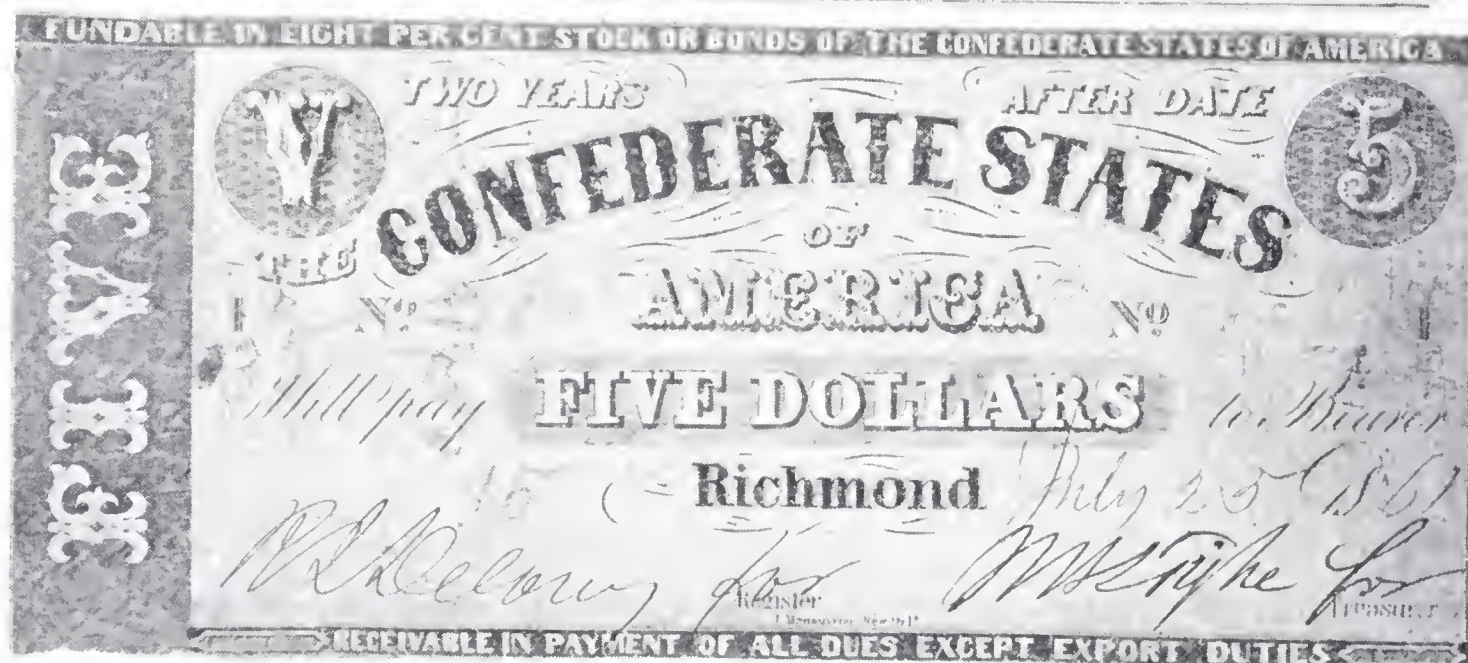 FUNDABLE IN EIGHT PER CENT STOCK OR BONDS OF THE CONFEDERATE STATES OF AMERICA
FIVE
V TWO YEARS AFTER DATE 5
THE CONFEDERATE STATES
OF
AMERICA
No No
Will pay FIVE DOLLARS to Bearer
Richmond July 25th 1861
for for
Register Treasurer
RECEIVABLE IN PAYMENT OF ALL DUES EXCEPT EXPORT DUTIES